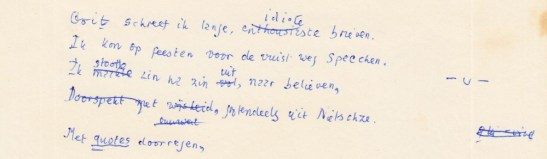 idiote
Goritz schreef ik lange, enthousiaste brieven.
Ik kon op feesten voor de vuist weg speechen.
stootte uit
Ik maakte zin na zin vol, naar believen,
Doorspekt met wijsheid, grotendeels uit Nietschze.
Met quotes doorregen,